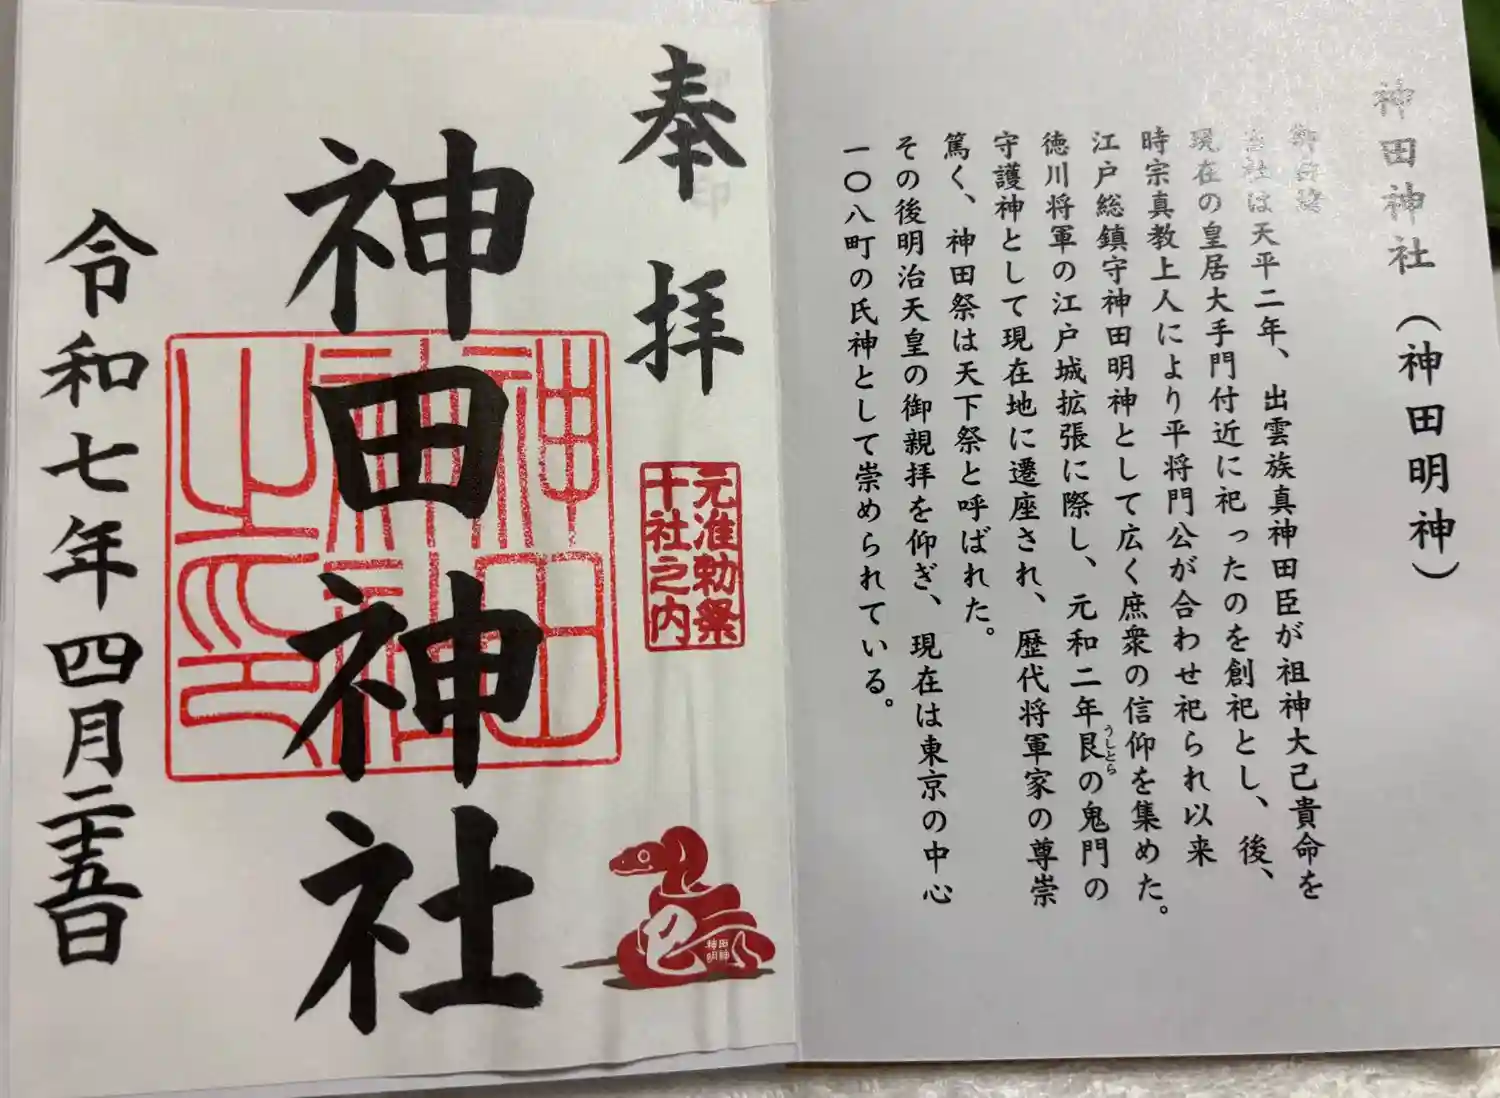 神田神社（神田明神）
御由緒
当社は天平二年、出雲族真神田臣が祖神大己貴命を
現在の皇居大手門付近に祀ったのを創祀とし、後、
時宗真教上人により平将門公が合わせ祀られ以来
江戸総鎮守神田明神として広く庶衆の信仰を集めた。
徳川将軍の江戸城拡張に際し、元和二年艮の鬼門の
うしとら
守護神として現在地に遷座され、歴代将軍家の尊崇
篤く、神田祭は天下祭と呼ばれた。
その後明治天皇の御親拝を仰ぎ、現在は東京の中心
一〇八町の氏神として崇められている。
奉拝
元准勅祭
十社之内
巳
神田
明神
神田神社
神田
神社
之印
令和七年四月二十五日